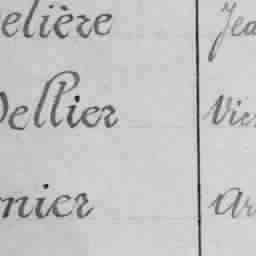 elière Jea
ellier Vic
nier Ar